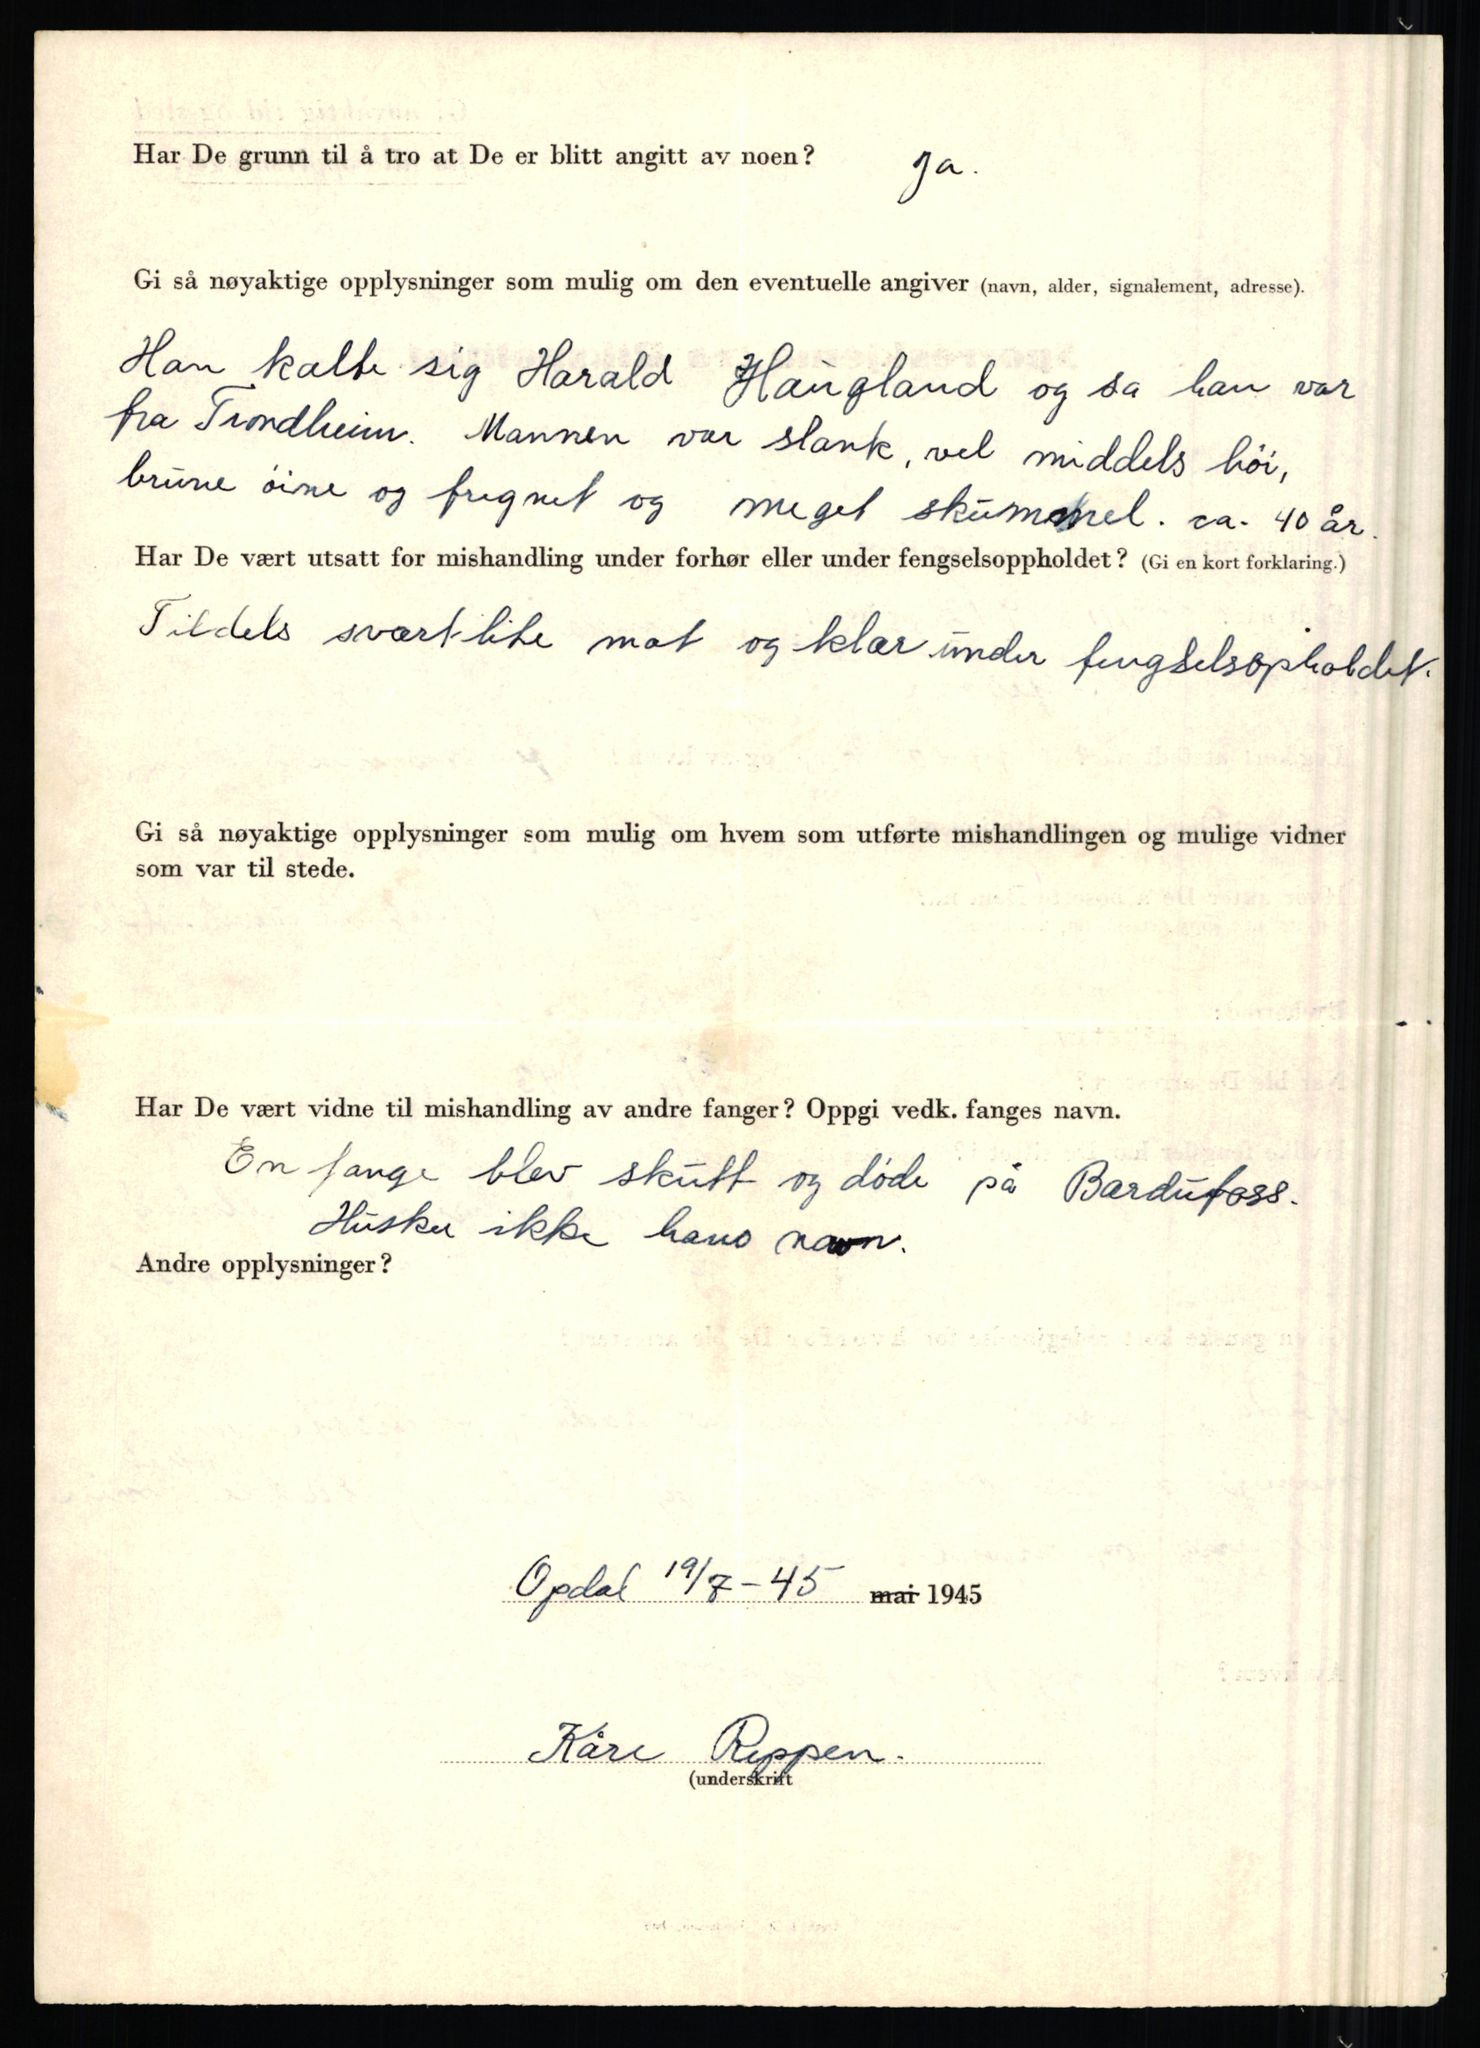 Har De grunn til å tro at De er blitt angitt av noen? Ja.
Gi så nøyaktige opplysninger som mulig om den eventuelle angiver (navn, alder, signalement, adresse).
Han kalte sig Harald Haugland og sa han var
fra Trondheim. Mannen var slank, vel middels høi,
brune øine og fregnet og meget skummel. ca. 40 år.
Har De vært utsatt for mishandling under forhør eller under fengselsoppholdet? (Gi en kort forklaring.)
Tildels svært lite mat og klær under fengselsopholdet.
Gi så nøyaktige opplysninger som mulig om hvem som utførte mishandlingen og mulige vidner
som var til stede.
Har De vært vidne til mishandling av andre fanger? Oppgi vedk. fanges navn.
En fange blev skutt og døde på Bardufoss.
Husker ikke hans navn.
Andre opplysninger?
Opdal 19/7-45 mai 1945
Kåre Reppen.
(underskrift